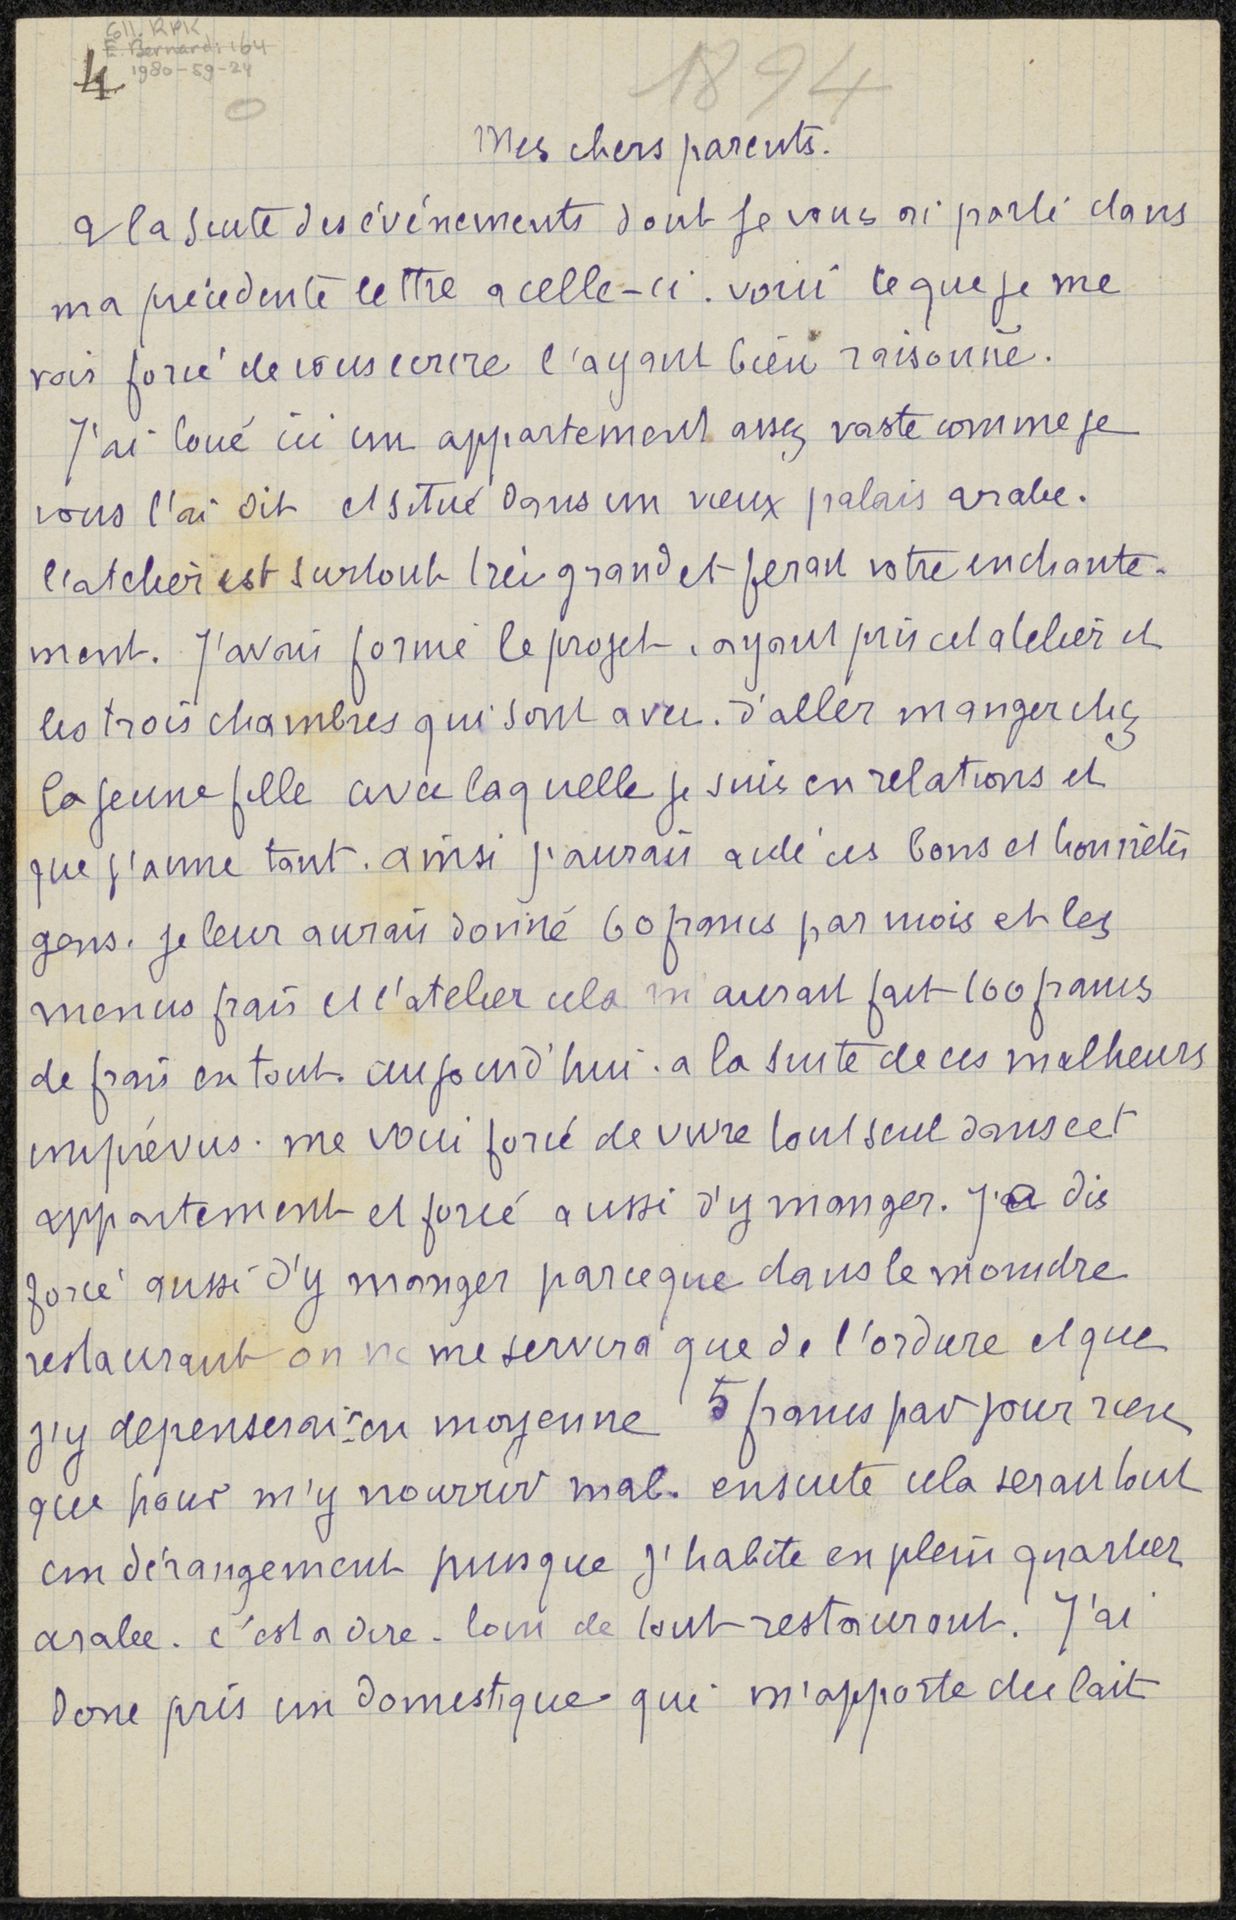 611. RPK
E. Bernard: 164
1980-59-24
4
1894
Mes chers parents.
a la suite des événements dont je vous ai parlé dans
ma précédente lettre a celle-ci. voici ce que je me
vois forcé de vous ecrire l'ayant bien raisonné.
J'ai loué ici un appartement assez vaste comme je
vous l'ai dit et situé dans un vieux palais arabe.
l'atelier est surtout très grand et ferait votre enchante-
ment. J'avais formé le projet, ayant pris cet atelier et
les trois chambres qui sont avec. d'aller manger chez
la jeune fille avec laquelle je suis en relations et
que j'aime tant. ainsi j'aurais aidé ces bons et honnêtes
gens. je leur aurais donné 60 francs par mois et les
menus frais et l'atelier cela m'aurait fait 100 francs
de frais en tout. aujourd'hui. a la suite de ces malheurs
imprévus. me voici forcé de vivre tout seul dans cet
appartement et forcé aussi d'y manger. J'a dis
forcé aussi d'y manger parceque dans le moindre
restaurant on ne me servira que de l'ordure et que
j'y depenserai en moyenne 5 francs par jour rien
que pour m'y nourrir mal. ensuite cela serait tout
un dérangement puisque j'habite en plein quartier
arabe. c'est a dire. loin de tout restaurant. J'ai
donc pris un domestique qui m'apporte du lait